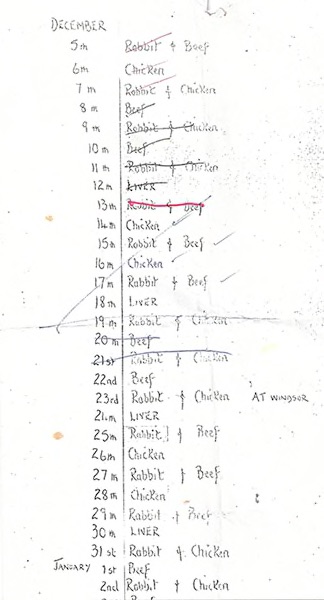 DECEMBER
5th Rabbit & Beef
6th Chicken
7th Rabbit & Chicken
8th Beef
9th Rabbit & Chicken
10th Beef
11th Rabbit & Chicken
12th LIVER
13th Rabbit & Beef
14th Chicken
15th Rabbit & Beef
16th Chicken
17th Rabbit & Beef
18th LIVER
19th Rabbit & Chicken
20th Beef
21st Rabbit & Chicken
22nd Beef
23rd Rabbit & Chicken AT WINDSOR
24th LIVER
25th Rabbit & Beef
26th Chicken
27th Rabbit & Beef
28th Chicken
29th Rabbit & Beef
30th LIVER
31st Rabbit & Chicken
JANUARY 1st Beef
2nd Rabbit & Chicken
Beef